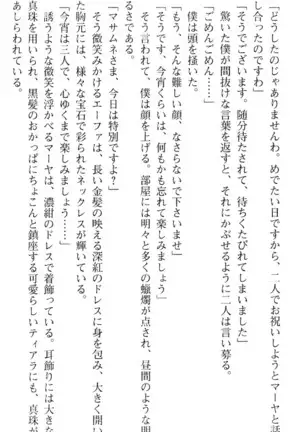 「どうしたのじゃありませんわ。めでたい日ですから、二人でお祝いしようとマーヤと話
し合ったのですわ」
「そうでございます。随分待たされて、待ちくたびれてしまいました」
驚いた僕が間抜けな言葉を返すと、それにかぶせるように二人は言い募る。
「ごめんごめん……」
僕は頭を掻いた。
「もう、そんな難しい顔、なさらないで下さいませ」
「そうです、今宵くらいは、何もかも忘れて楽しみましょう」
そう言われて、僕は顔を上げる。部屋には明々と多くの蠟燭が点され、昼間のような明
るさである。
「マサムネさま、今日は特別ですよ?」
そう微笑みかけるエーファは、長い金髪の映える深紅のドレスに身を包み、大きく開い
た胸元には、様々な宝石で彩られたネックレスが輝いている。
「今宵は三人で、心ゆくまで楽しみましょう……」
誘うような微笑を浮かべるマーヤは、濃紺のドレスで着飾っている。耳飾りには大きな
真珠を用いられ、黒髪のおかっぱにちょこんと鎮座する可愛らしいティアラにも、真珠が
あしらわれている。